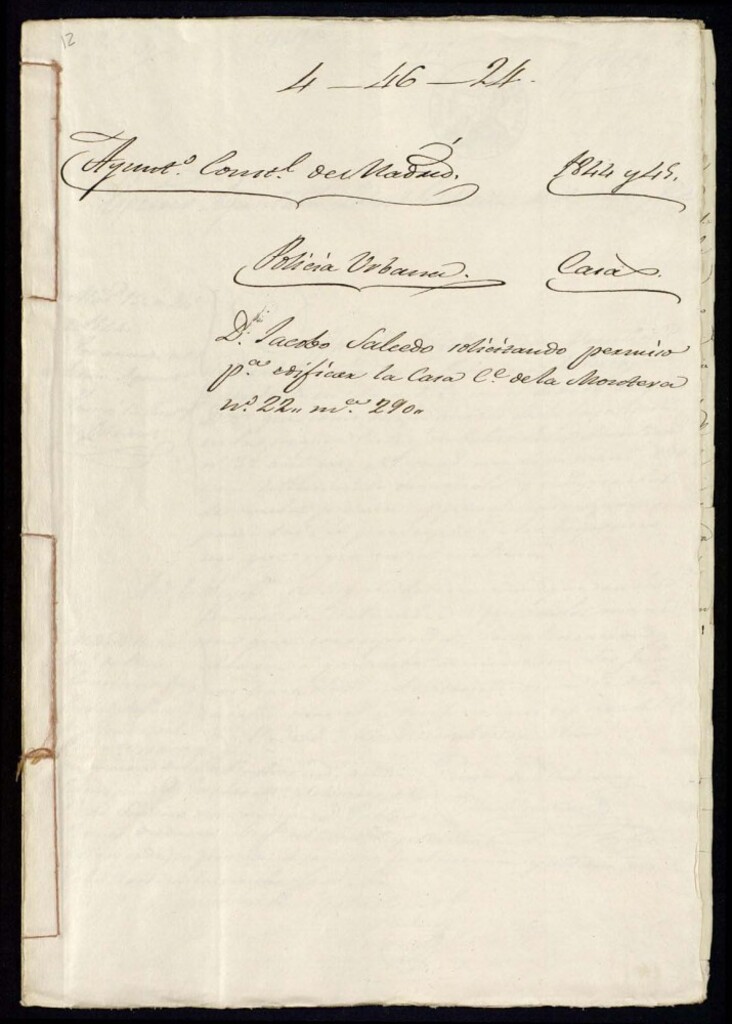 12
4 - 46 - 24.
Ayunt.º Const.l de Madrid. 1844 y 45.
Policia Urbana. Casas.
D.n Jacobo Salcedo solicitando permiso
p.a edificar la Casa C.e de la Montera
n.º 22,, m.a 290,,